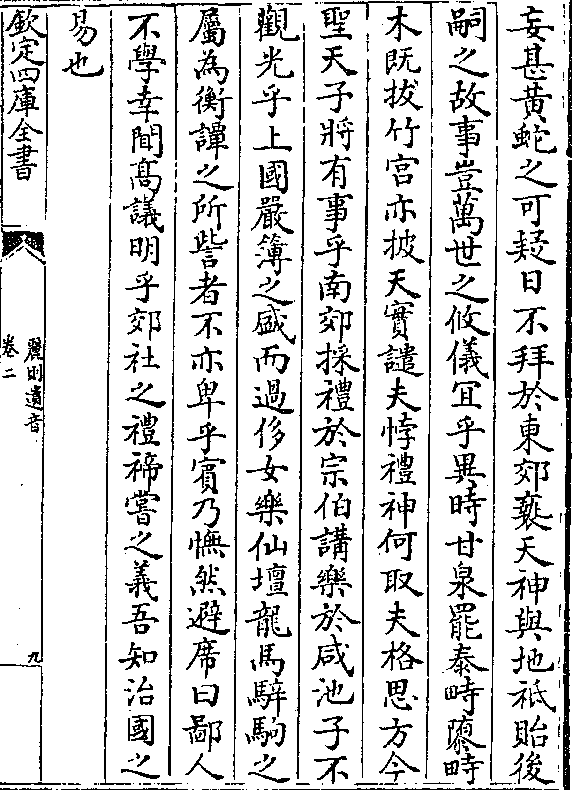 妄甚黃蛇之可疑日不拜於東郊䙝天神與地祇貽後
嗣之故事豈萬世之攸儀冝乎異時甘泉罷泰畤隳畤
木既拔竹宫亦披天實譴夫悖禮神何取夫格思方今
聖天子將有事乎南郊採禮於宗伯講樂於咸池子不
觀光乎上國嚴簿之盛而過侈女樂仙壇龍馬騂駒之
屬為衡譚之所訾者不亦卑乎賓乃憮然避席曰鄙人
不學幸聞髙議明乎郊社之禮禘嘗之義吾知治國之
易也
欽定四庫全書
麗則遺音
卷二
九